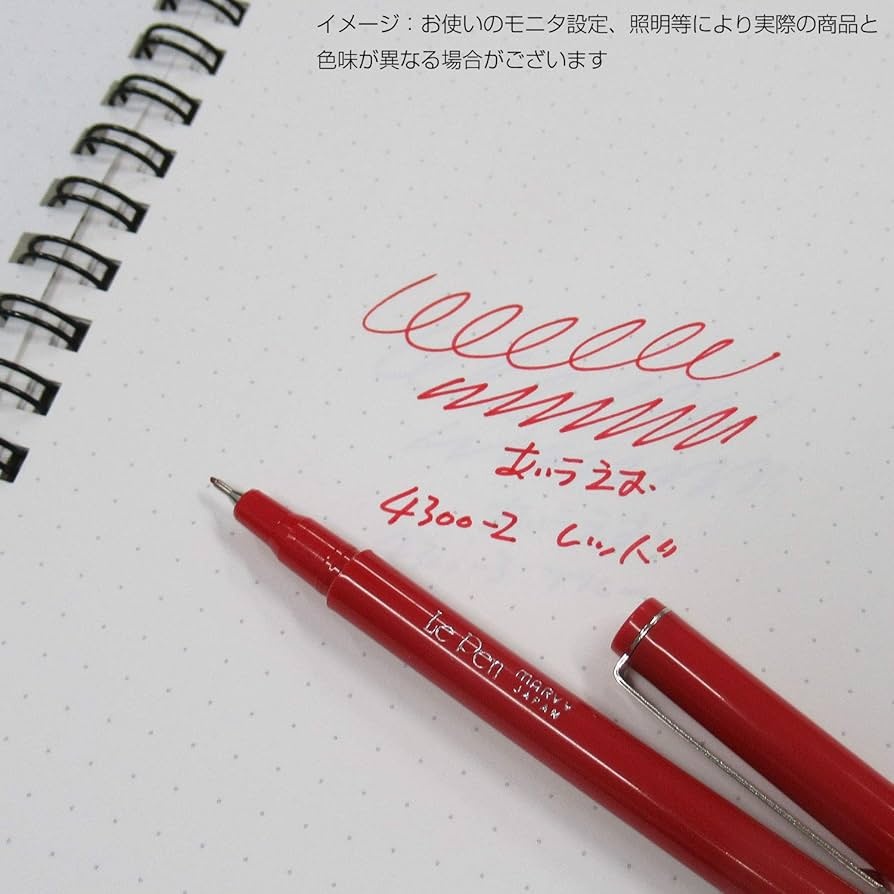 イメージ：お使いのモニタ設定、照明等により実際の商品と
色味が異なる場合がございます
あいうえお
4300-2 レッド
Le Pen MARVY
JAPAN